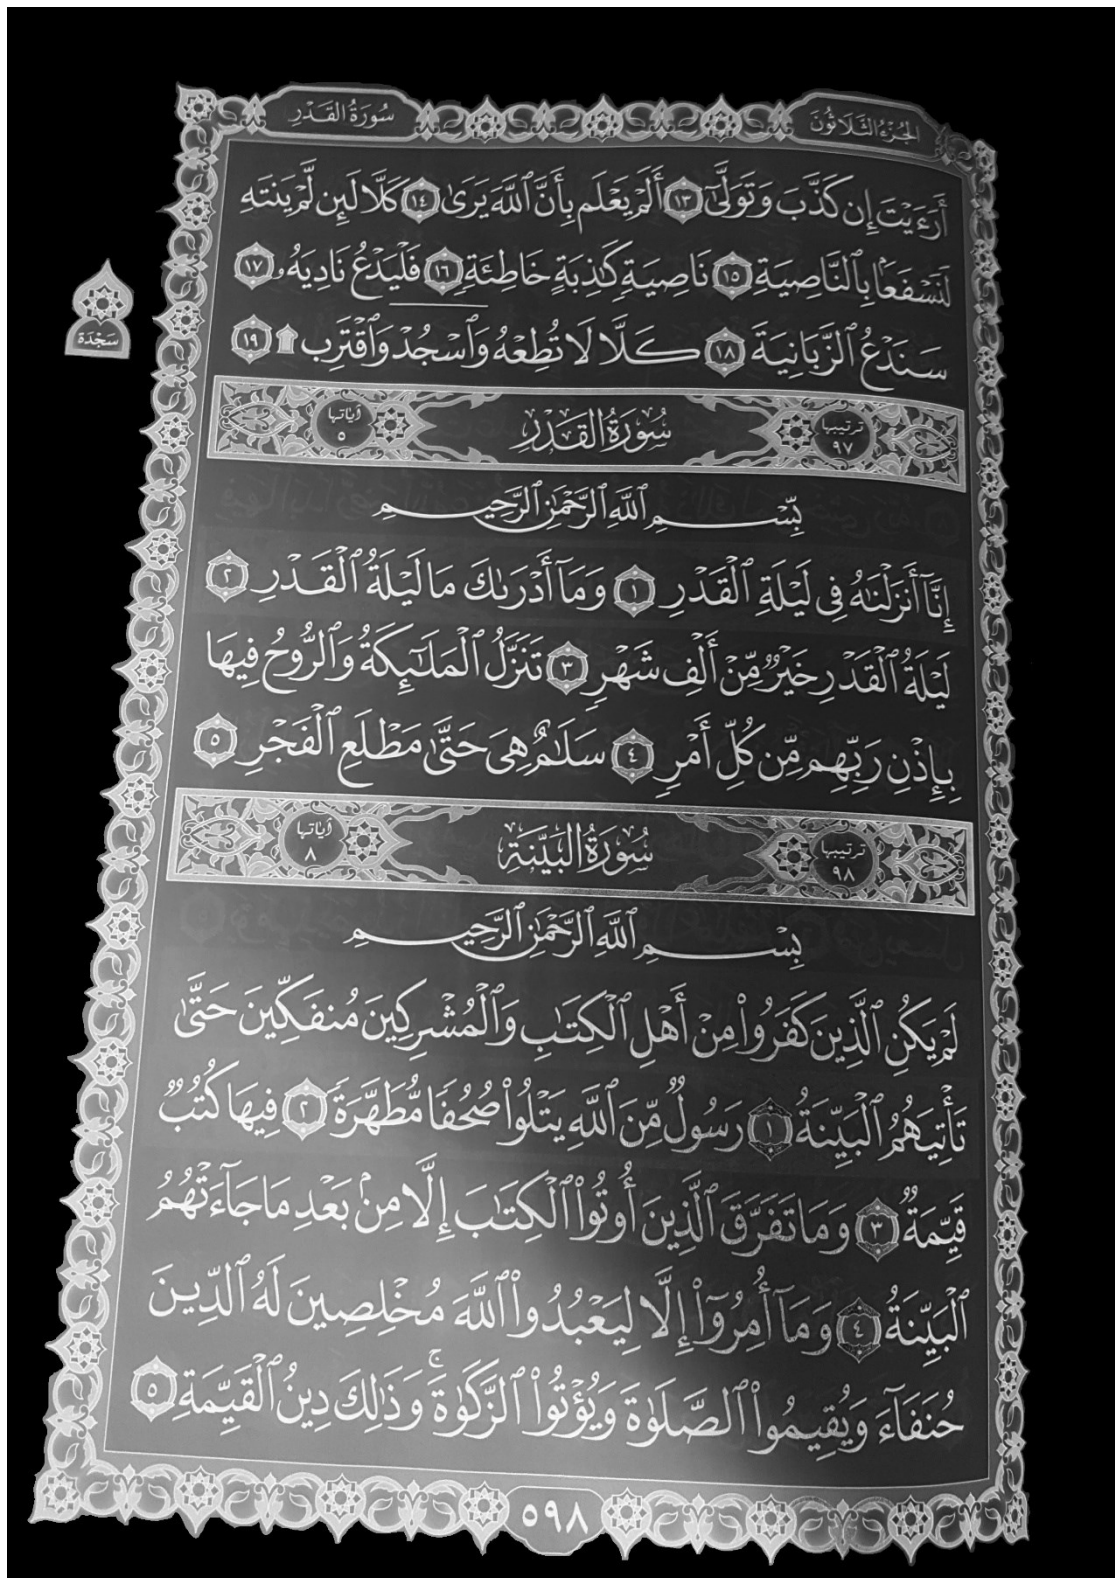 الجزء الثلاثون
سورة القدر
أَرَءَيْتَ إِن كَذَّبَ وَتَوَلَّىٰٓ ١٣ أَلَمْ يَعْلَم بِأَنَّ ٱللَّهَ يَرَىٰ ١٤ كَلَّا لَئِن لَّمْ يَنتَهِ
لَنَسْفَعًۢا بِٱلنَّاصِيَةِ ١٥ نَاصِيَةٍ كَٰذِبَةٍ خَاطِئَةٍ ١٦ فَلْيَدْعُ نَادِيَهُۥ ١٧
سَنَدْعُ ٱلزَّبَانِيَةَ ١٨ كَلَّا لَا تُطِعْهُ وَٱسْجُدْ وَٱقْتَرِب ۩ ١٩
سَجْدَة
ترتيبها ٩٧
سُورَةُ القَدْرِ
آياتها ٥
بِسْمِ ٱللَّهِ ٱلرَّحْمَٰنِ ٱلرَّحِيمِ
إِنَّآ أَنزَلْنَٰهُ فِى لَيْلَةِ ٱلْقَدْرِ ١ وَمَآ أَدْرَىٰكَ مَا لَيْلَةُ ٱلْقَدْرِ ٢
لَيْلَةُ ٱلْقَدْرِ خَيْرٌ مِّنْ أَلْفِ شَهْرٍ ٣ تَنَزَّلُ ٱلْمَلَٰٓئِكَةُ وَٱلرُّوحُ فِيهَا
بِإِذْنِ رَبِّهِم مِّن كُلِّ أَمْرٍ ٤ سَلَٰمٌ هِىَ حَتَّىٰ مَطْلَعِ ٱلْفَجْرِ ٥
ترتيبها ٩٨
سُورَةُ البَيِّنَةِ
آياتها ٨
بِسْمِ ٱللَّهِ ٱلرَّحْمَٰنِ ٱلرَّحِيمِ
لَمْ يَكُنِ ٱلَّذِينَ كَفَرُوا۟ مِنْ أَهْلِ ٱلْكِتَٰبِ وَٱلْمُشْرِكِينَ مُنفَكِّينَ حَتَّىٰ
تَأْتِيَهُمُ ٱلْبَيِّنَةُ ١ رَسُولٌ مِّنَ ٱللَّهِ يَتْلُوا۟ صُحُفًا مُّطَهَّرَةً ٢ فِيهَا كُتُبٌ
قَيِّمَةٌ ٣ وَمَا تَفَرَّقَ ٱلَّذِينَ أُوتُوا۟ ٱلْكِتَٰبَ إِلَّا مِنۢ بَعْدِ مَا جَآءَتْهُمُ
ٱلْبَيِّنَةُ ٤ وَمَآ أُمِرُوٓا۟ إِلَّا لِيَعْبُدُوا۟ ٱللَّهَ مُخْلِصِينَ لَهُ ٱلدِّينَ
حُنَفَآءَ وَيُقِيمُوا۟ ٱلصَّلَوٰةَ وَيُؤْتُوا۟ ٱلزَّكَوٰةَ ۚ وَذَٰلِكَ دِينُ ٱلْقَيِّمَةِ ٥
٥٩٨